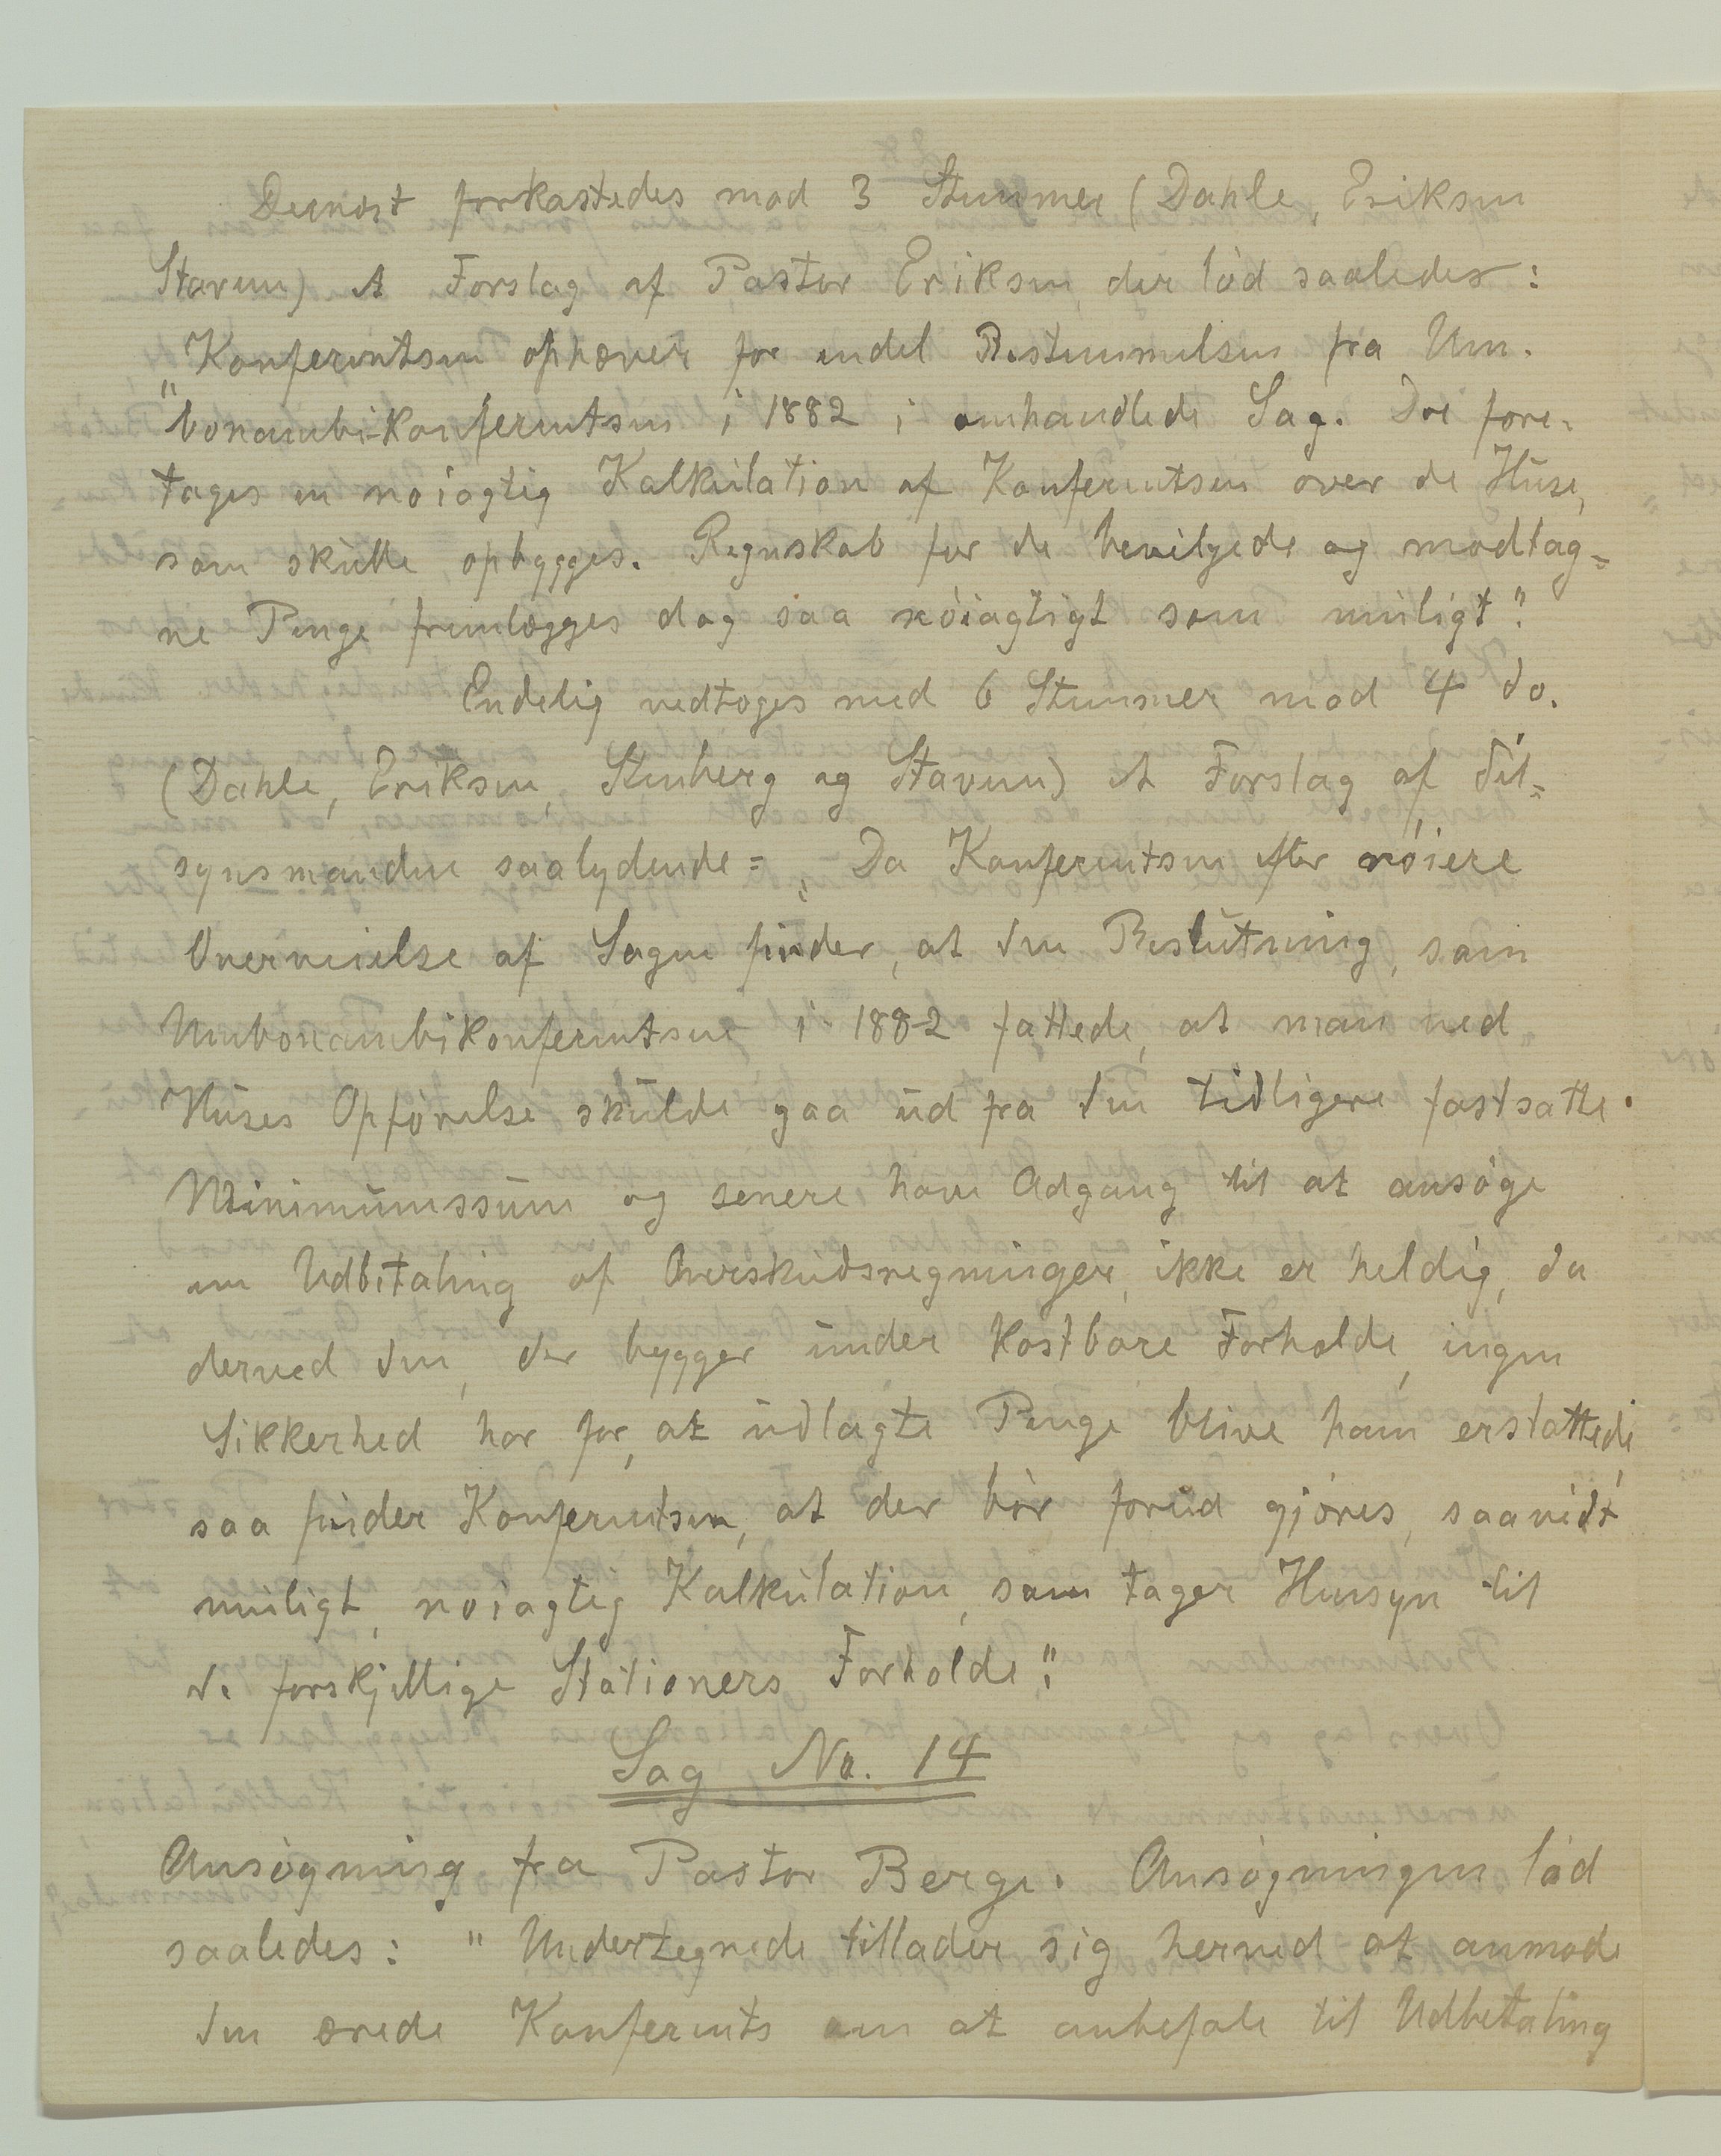 Dernæst forkastedes mod 3 Stemmer (Dahle, Eriksen
Stavem) et Forslag af Pastor Eriksen, der lød saaledes:
"Konferentsen ophæver for endel Bestemmelsen fra Um-
bonambi-Konferentsen i 1882 i omhandlede Sag. Der fore-
tages en nøiagtig Kalkulation af Konferentsen over de Huse,
som skulle opbygges. Regnskab for de bevilgede og modtag=
ne Penge fremlægges dog saa nøiagtigt som muligt".
Endelig vedtoges med 6 Stemmer mod 4 do.
(Dahle, Eriksen, Stenberg og Stavem) et Forslag af Til=
synsmanden saalydende: "Da Konferentsen efter nøiere
Overveielse af Sagen finder, at den Beslutning, som
Umbonambikonferentsen i 1882 fattede, at man ved
Huses Opførelse skulde gaa ud fra den tidligere fastsatte
Minimumssum og senere have Adgang til at ansøge
om Udbetaling af Overskudsregninger, ikke er heldig, da
derved den, der bygger under kostbare Forholde, ingen
Sikkerhed har for, at udlagte Penge blive ham erstattede,
saa finder Konferentsen, at der bør forud gjøres, saavidt
muligt, nøiagtig Kalkulation, som tager Hensyn til
de forskjellige Stationers Forholde".
Sag No. 14
Ansøgning fra Pastor Berge. Ansøgningen lød
saaledes: "Undertegnede tillader sig herved at anmode
den ærede Konferents om at anbefale til Udbetaling